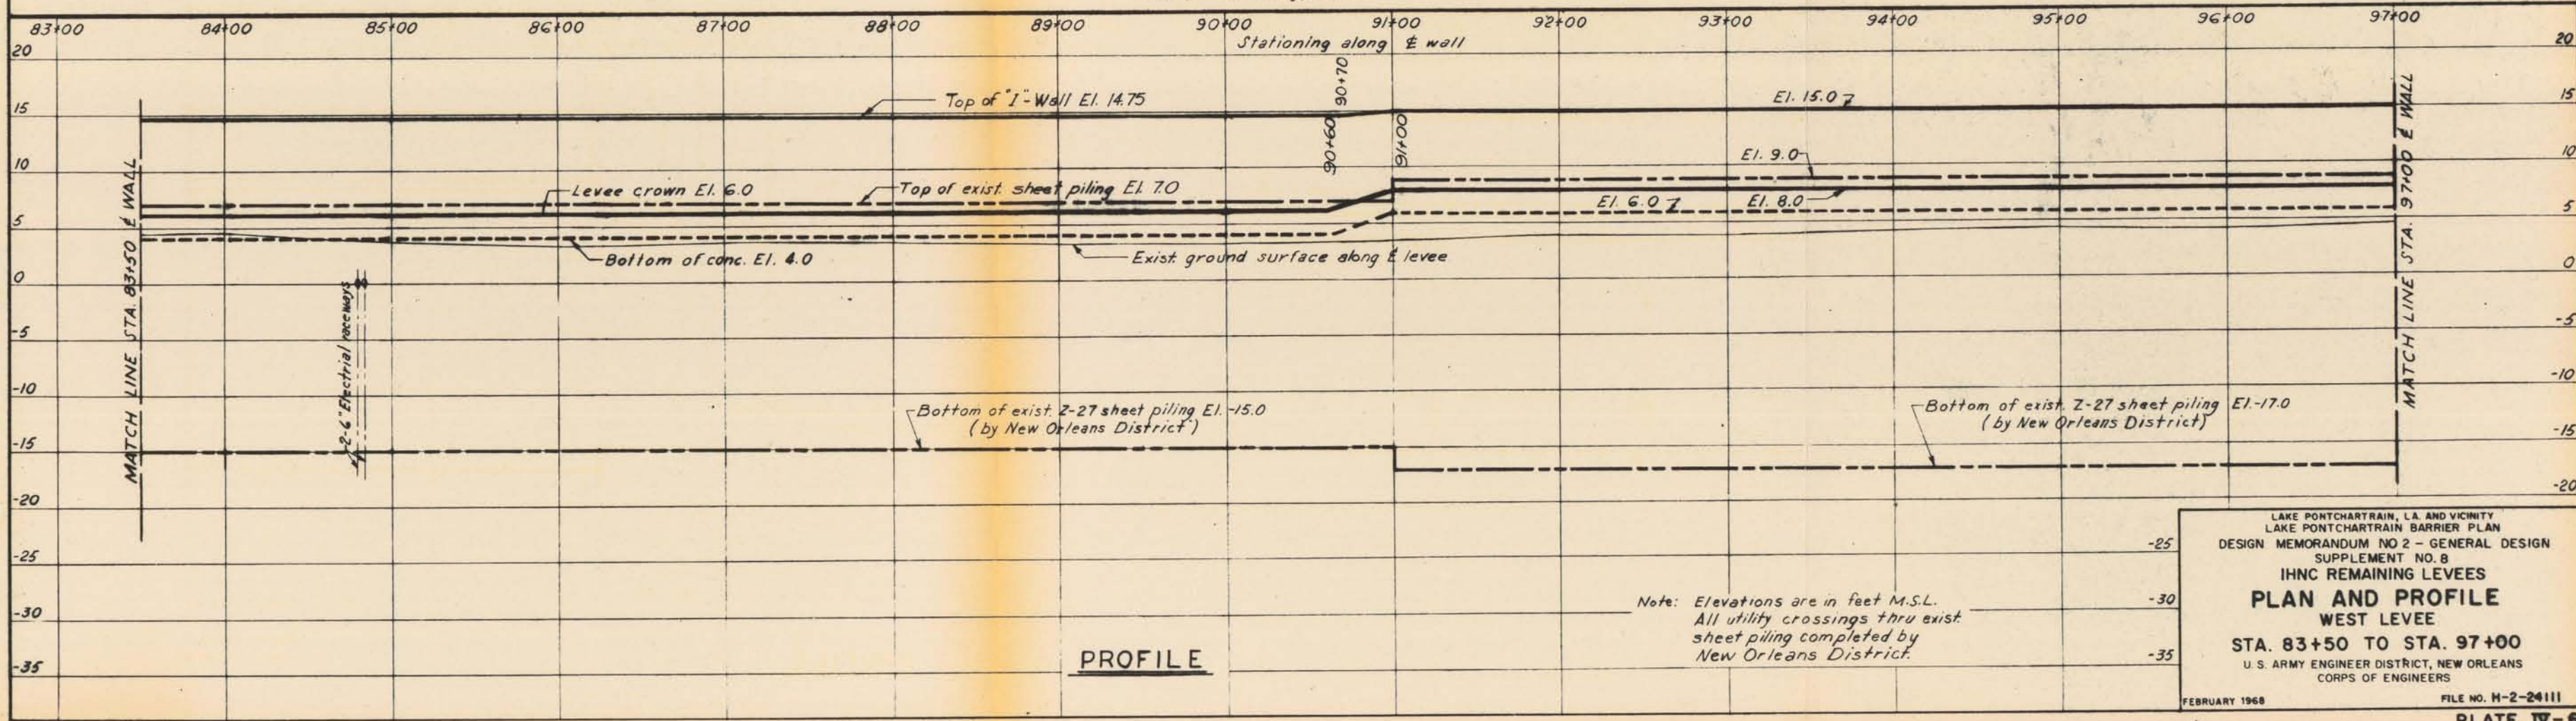 83+00 84+00 85+00 86+00 87+00 88+00 89+00 90+00 91+00 92+00 93+00 94+00 95+00 96+00 97+00
Stationing along ℄ wall
20 20
15 15
10 10
5 5
0 0
-5 -5
-10 -10
-15 -15
-20 -20
-25 -25
-30 -30
-35 -35
MATCH LINE STA. 83+50 ℄ WALL
2-6" Electrial raceways
Top of "I"-Wall El. 14.75
90+70
90+60
91+00
El. 15.0
Levee crown El. 6.0
Top of exist. sheet piling El. 7.0
El. 9.0
El. 6.0
El. 8.0
Bottom of conc. El. 4.0
Exist. ground surface along ℄ levee
Bottom of exist. Z-27 sheet piling El. -15.0
(by New Orleans District)
Bottom of exist. Z-27 sheet piling El.-17.0
(by New Orleans District)
MATCH LINE STA. 97+00 ℄ WALL
Note: Elevations are in feet M.S.L.
All utility crossings thru exist.
sheet piling completed by
New Orleans District.
PROFILE
LAKE PONTCHARTRAIN, LA. AND VICINITY
LAKE PONTCHARTRAIN BARRIER PLAN
DESIGN MEMORANDUM NO 2 - GENERAL DESIGN
SUPPLEMENT NO. 8
IHNC REMAINING LEVEES
PLAN AND PROFILE
WEST LEVEE
STA. 83+50 TO STA. 97+00
U. S. ARMY ENGINEER DISTRICT, NEW ORLEANS
CORPS OF ENGINEERS
FEBRUARY 1968 FILE NO. H-2-24111